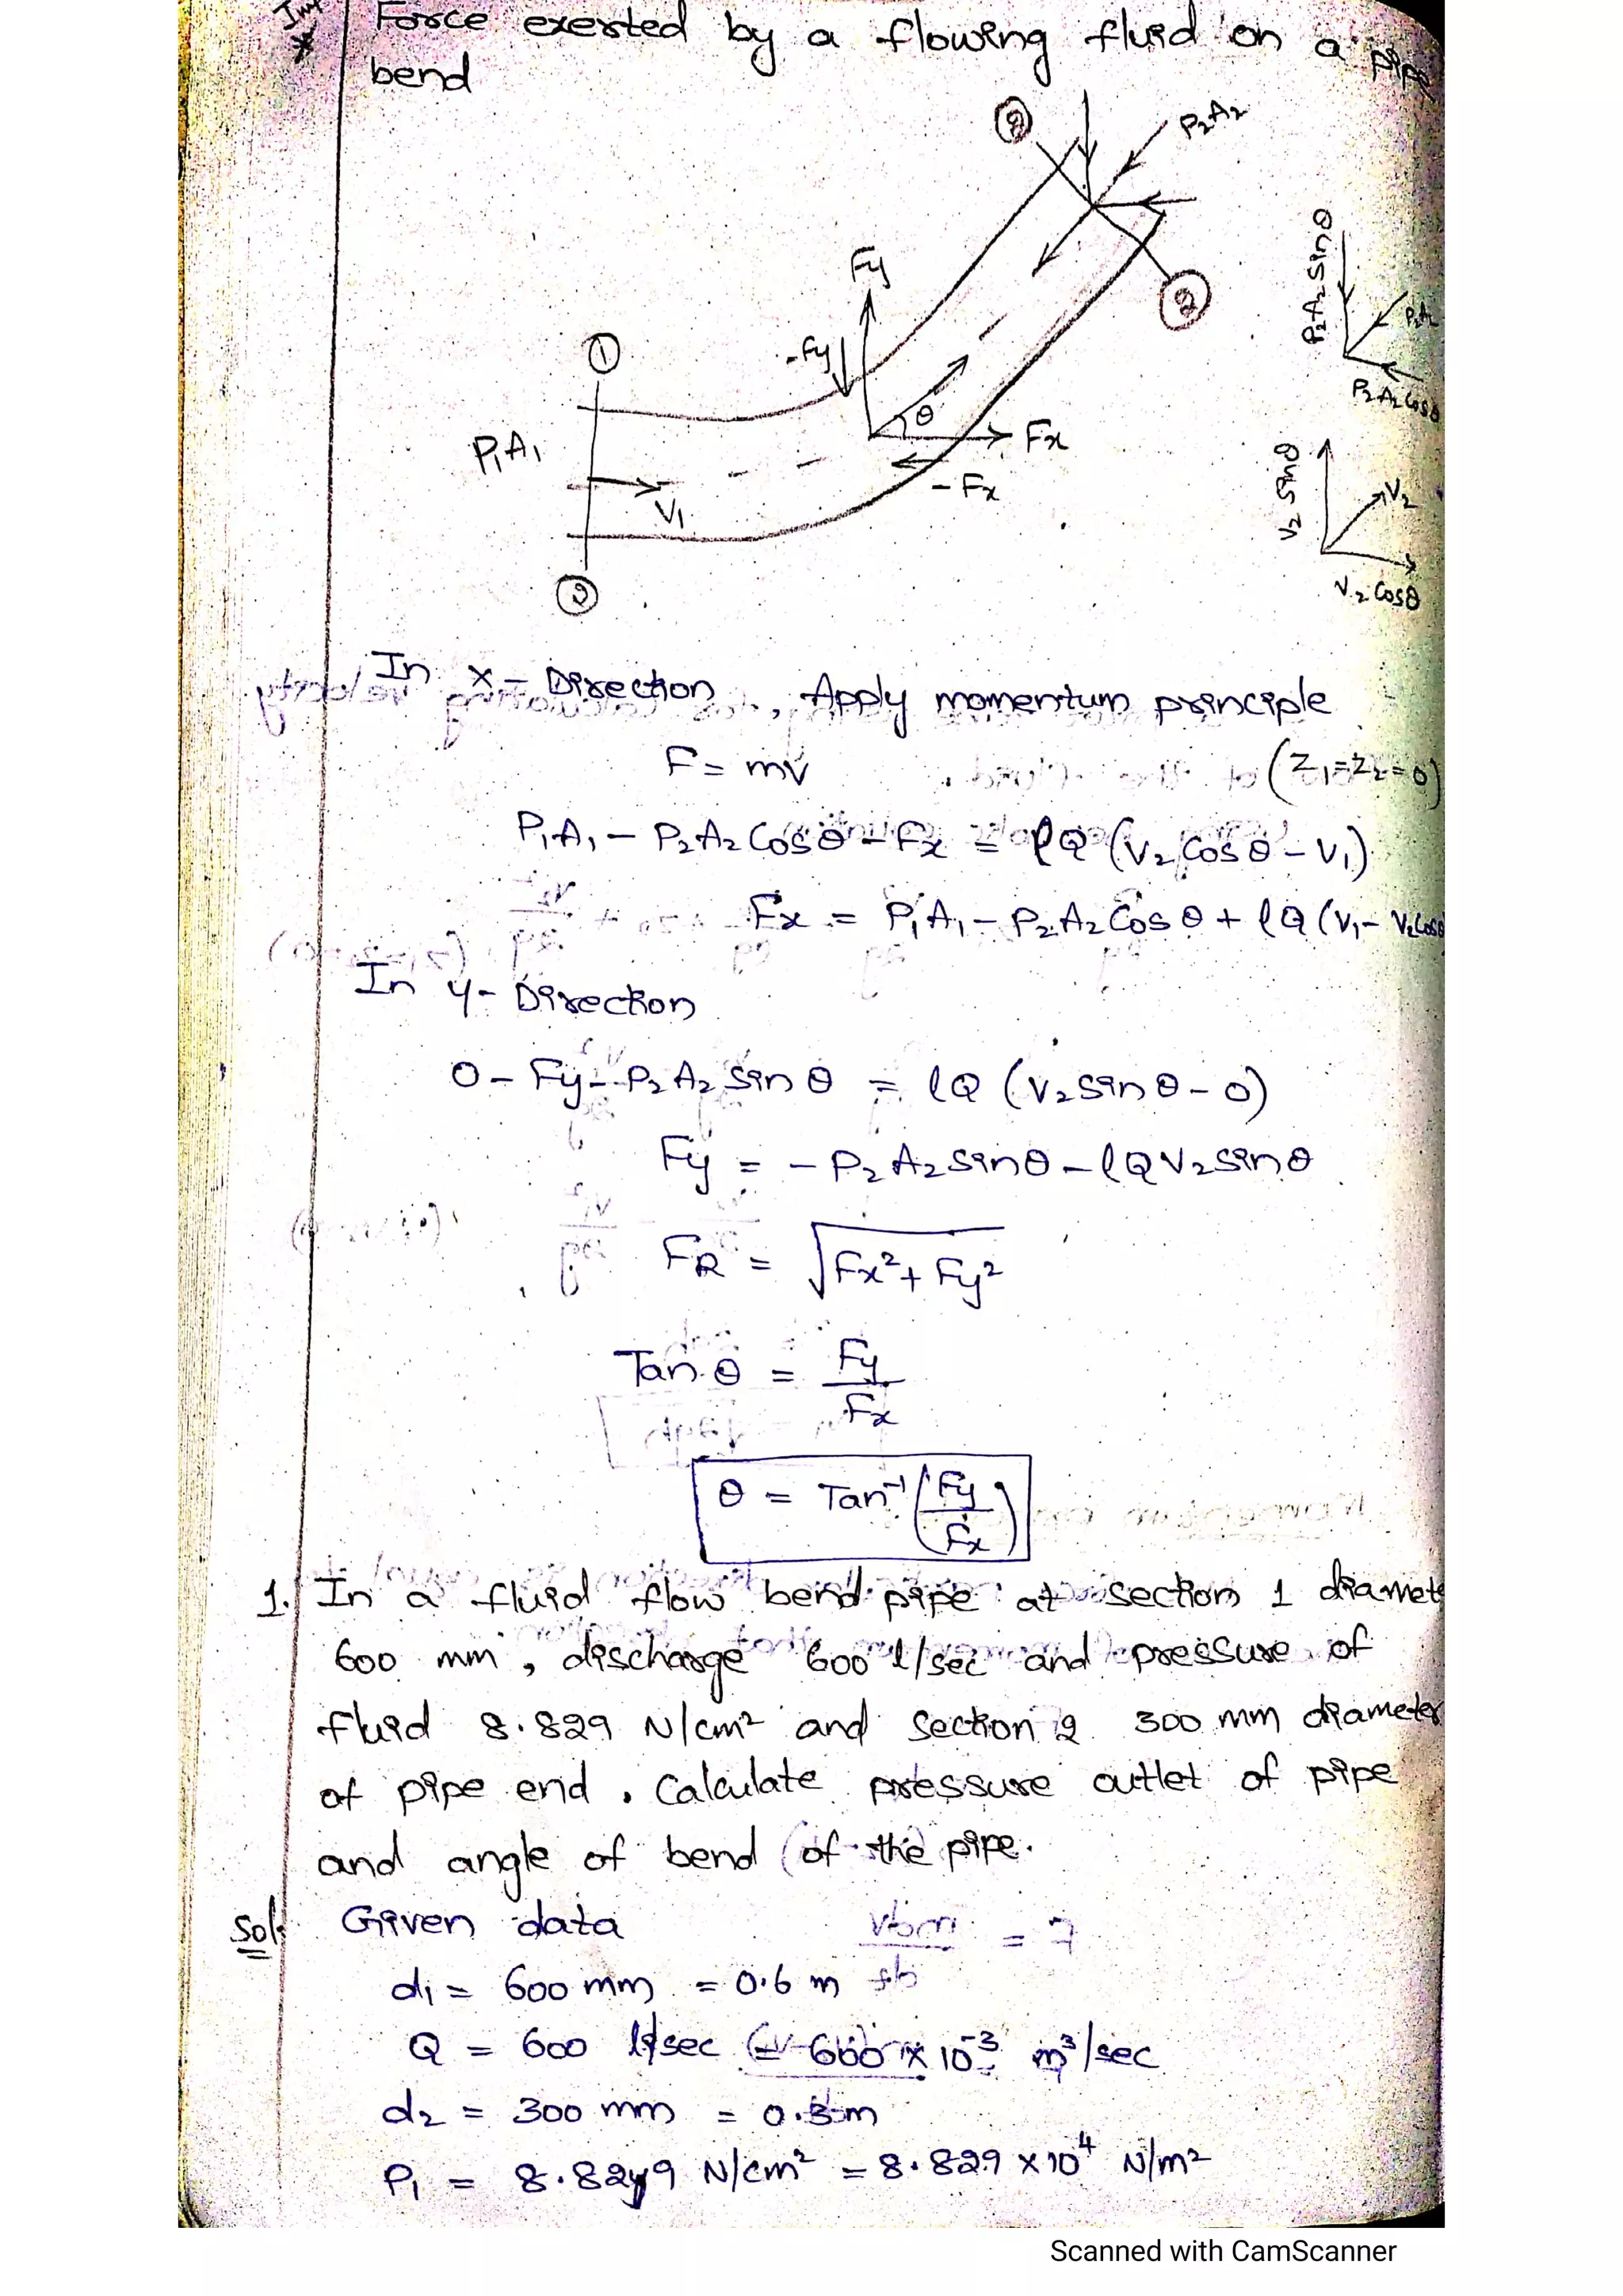 Imp
* Force exerted by a flowing fluid on a pipe
bend
② P₂A₂
Fy
②
P₂A₂ Sinθ
P₂A₂
P₂A₂ Cosθ
① -Fy
θ
P₁A₁ Fx
-Fx
V₁
V₂ Sinθ
V₂
V₂ Cosθ
②
In x - Direction, Apply momentum principle
F = mv (Z₁=Z₂=0)
P₁A₁ - P₂A₂ Cosθ - Fx = ρQ (V₂ Cosθ - V₁)
Fx = P₁A₁ - P₂A₂ Cosθ + ρQ (V₁ - V₂Cosθ
In y - Direction
0 - Fy - P₂A₂ Sinθ = ρQ (V₂ Sinθ - 0)
Fy = - P₂A₂ Sinθ - ρQV₂ Sinθ
FR = √Fx² + Fy²
Tan θ = Fy/Fx
θ = Tan⁻¹ (Fy/Fx)
1. In a fluid flow bend pipe at section 1 diamete
600 mm, discharge 600 l/sec and pressure of
fluid 8.829 N/cm² and section 2 300 mm diameter
of pipe end. Calculate pressure outlet of pipe
and angle of bend of the pipe.
Sol: Given data
d₁ = 600 mm = 0.6 m
Q = 600 l/sec = 600 x 10⁻³ m³/sec
d₂ = 300 mm = 0.3 m
P₁ = 8.829 N/cm² = 8.829 x 10⁴ N/m²
Scanned with CamScanner